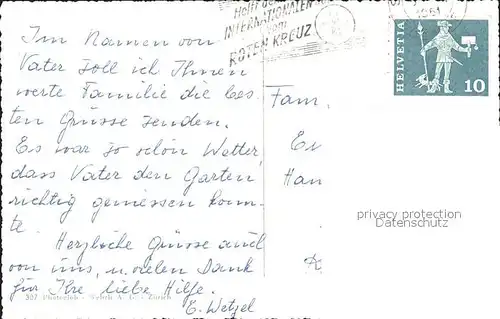 Im Namen von
Vater soll ich Ihnen
werte Familie die bes
ten Grüsse senden.
Es war so schön Wetter
dass Vater den Garten
richtig geniessen konn-
te.
Herzliche Grüsse auch
von uns, u. vielen Dank
für Ihre liebe Hilfe.
E. Wetzel
Helft
INTERNATIONALEN
ROTEN KREUZ
HELVETIA
10
Fam.
privacy protection
Datenschutz